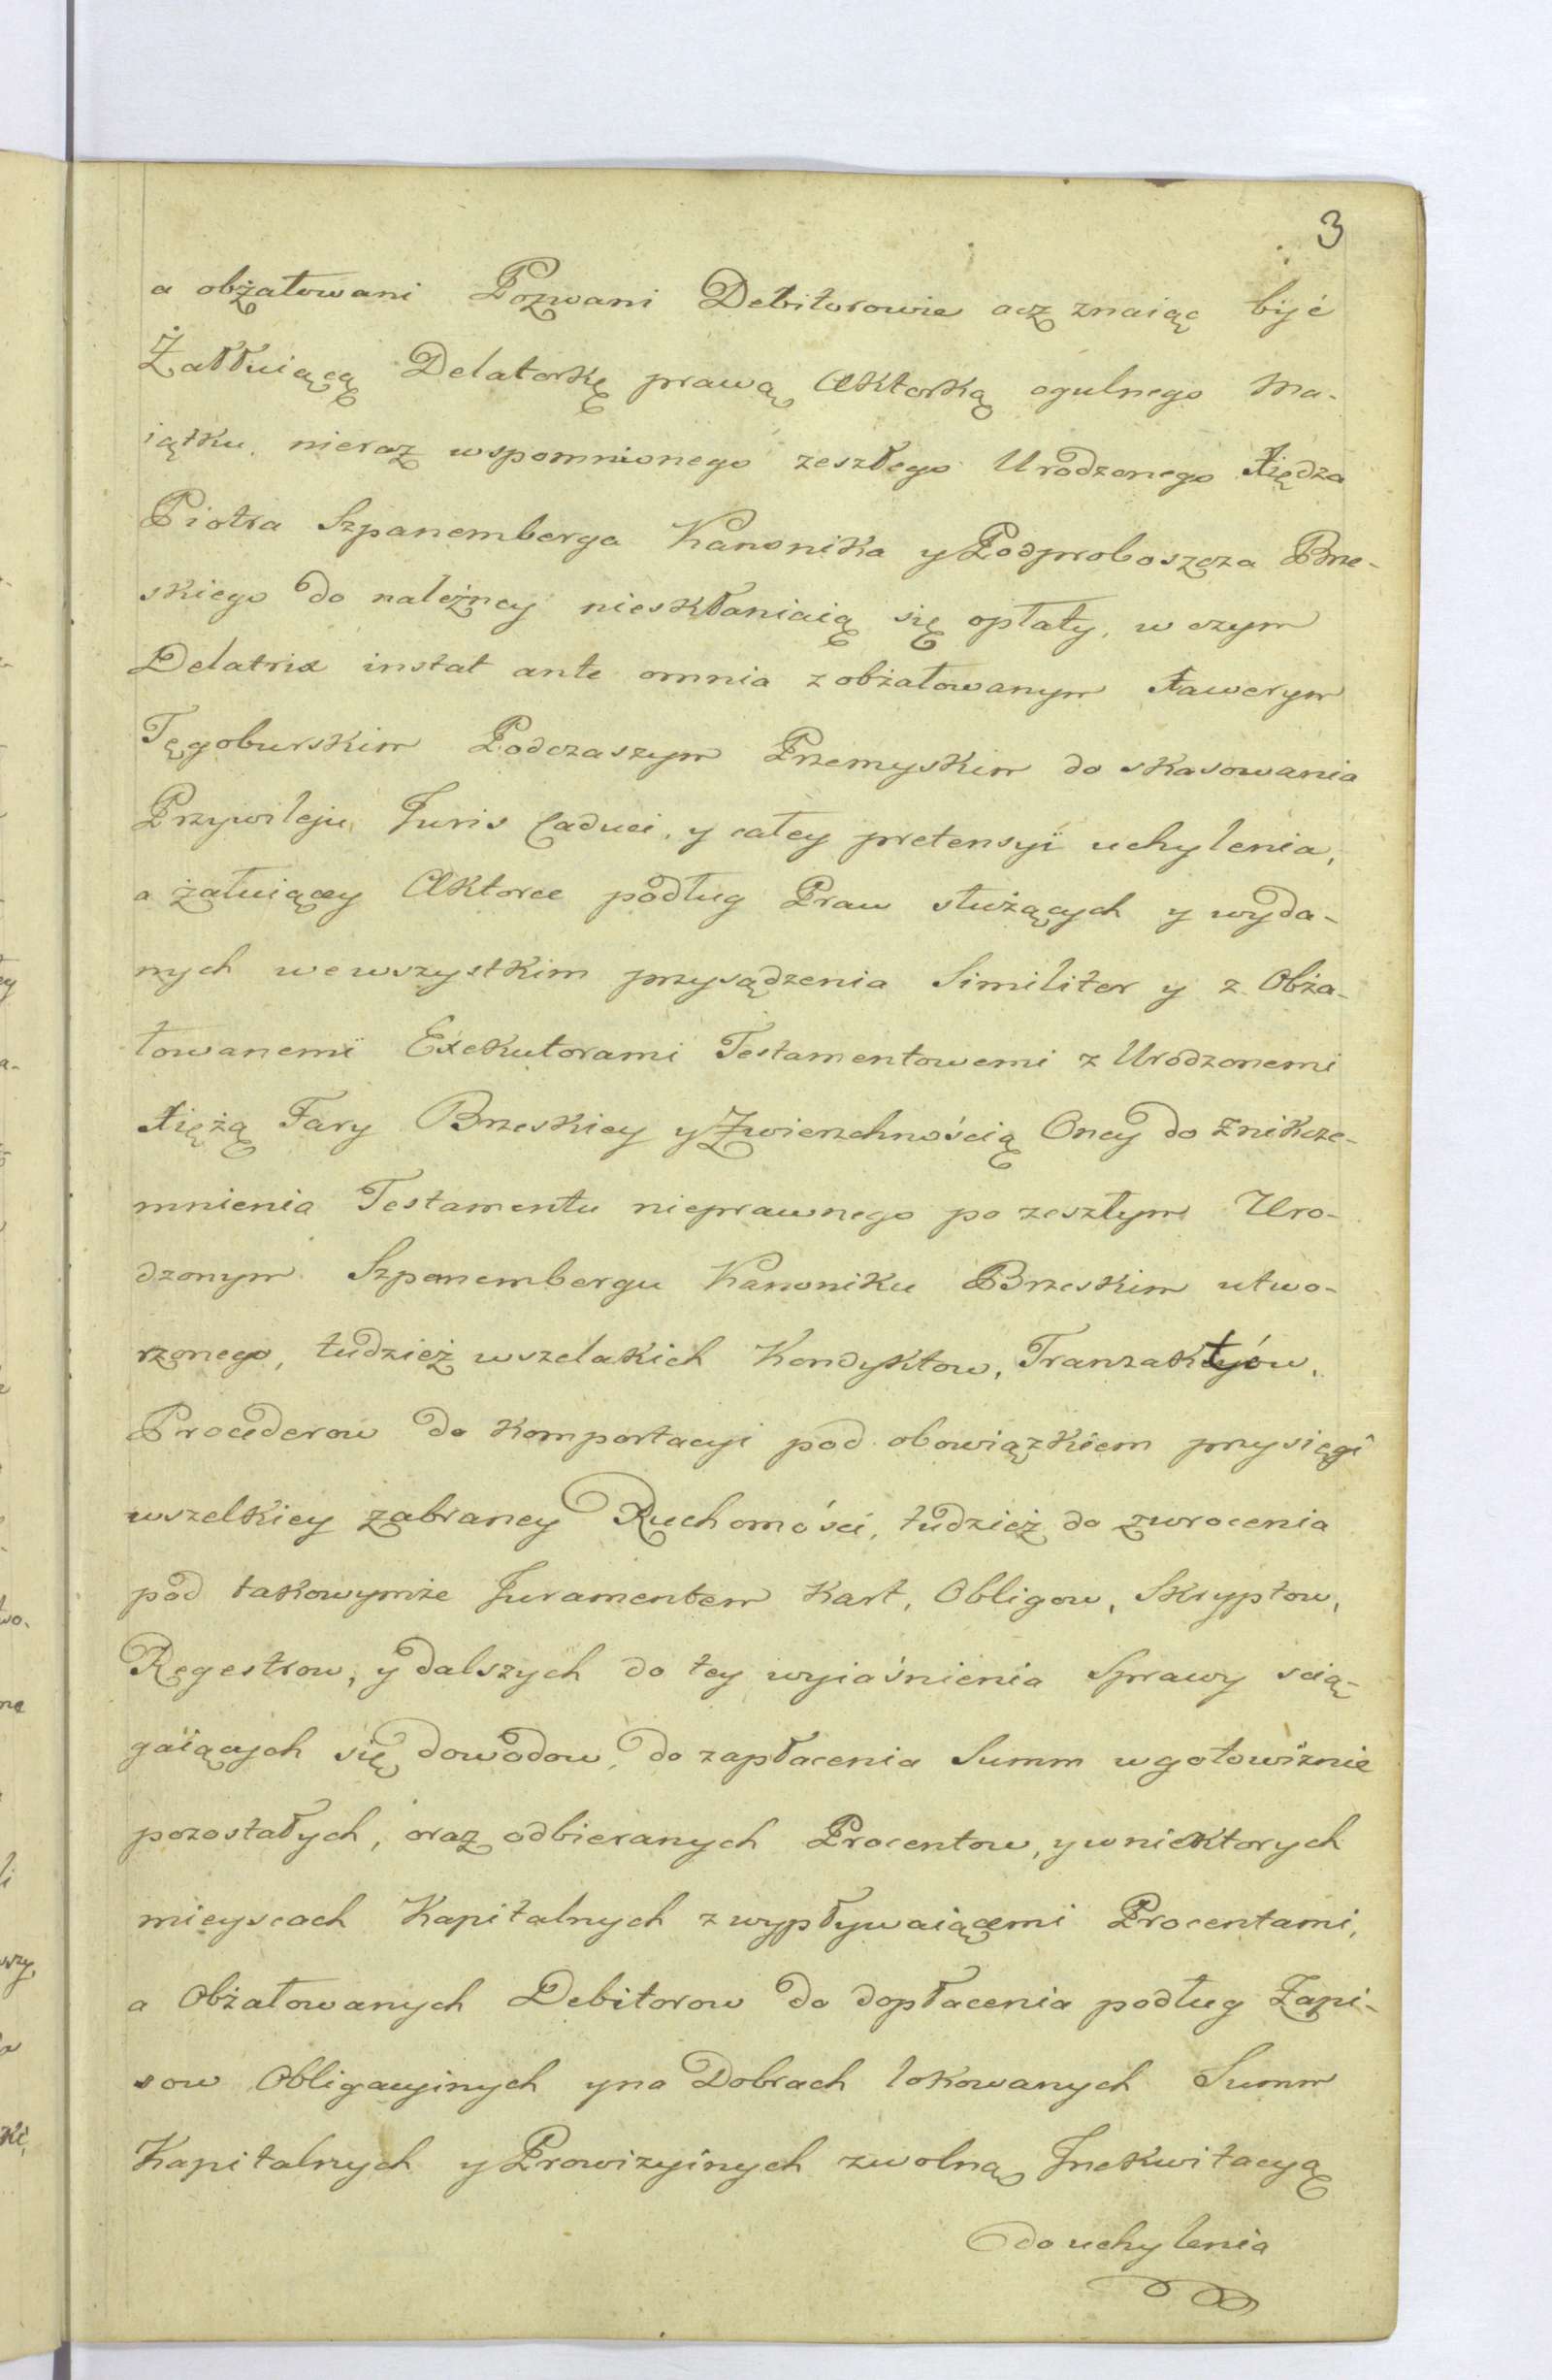 3
a obżałowani Pozwani Debitorowie acz znaiąc być
Żałłuiącą Delatorkę prawą Aktorką ogulnego Ma-
iątku nieraz wspomnionego zeszłego Urodzonego Xiędza
Piotra Szpanemberga Kanonika y Podproboszcza Brze-
skiego do należney nieskłaniaią się opłaty, w czym
Delatrix instat ante omnia z obżałowanym Xawerym
Tęgoburskim Podczaszym Przemyskim do skasowania
Przywileju Juris Caduci, y całey pretensyi uchylenia,
a żałuiącey Aktorce podług Praw służących y wyda-
nych we wszystkim przysądzenia Similiter y z Obża-
łowanemi Exekutorami Testamentowemi z Urodzonemi
Xiężą Fary Brzeskiey y Zwierzchnością Oney do znikcze-
mnienia Testamentu nieprawnego po zeszłym Uro-
dzonym Szpanembergu Kanoniku Brzeskim utwo-
rzonego, tudzież wszelakich Kondyktow, Tranzaktyów,
Procederow do komportacyi pod obowiązkiem przysięgi
wszelkiey zabraney Ruchomości, tudzież do zwrocenia
pod takowymże Juramentem Kart, Obligow, Skryptow,
Regestrow, y dalszych do tey wyiaśnienia Sprawy scią-
gaiących się dowodow, do zapłacenia Summ w gotowiznie
pozostałych, oraz odbieranych Procentow, y w niektorych
mieyscach Kapitalnych z wypływaiącemi Procentami,
a Obżałowanych Debitorow do dopłacenia podług Zapi-
sow Obligacyinych y na Dobrach lokowanych Summ
Kapitalnych y Prowizyinych z wolną Inekwitacyą
do uchylenia